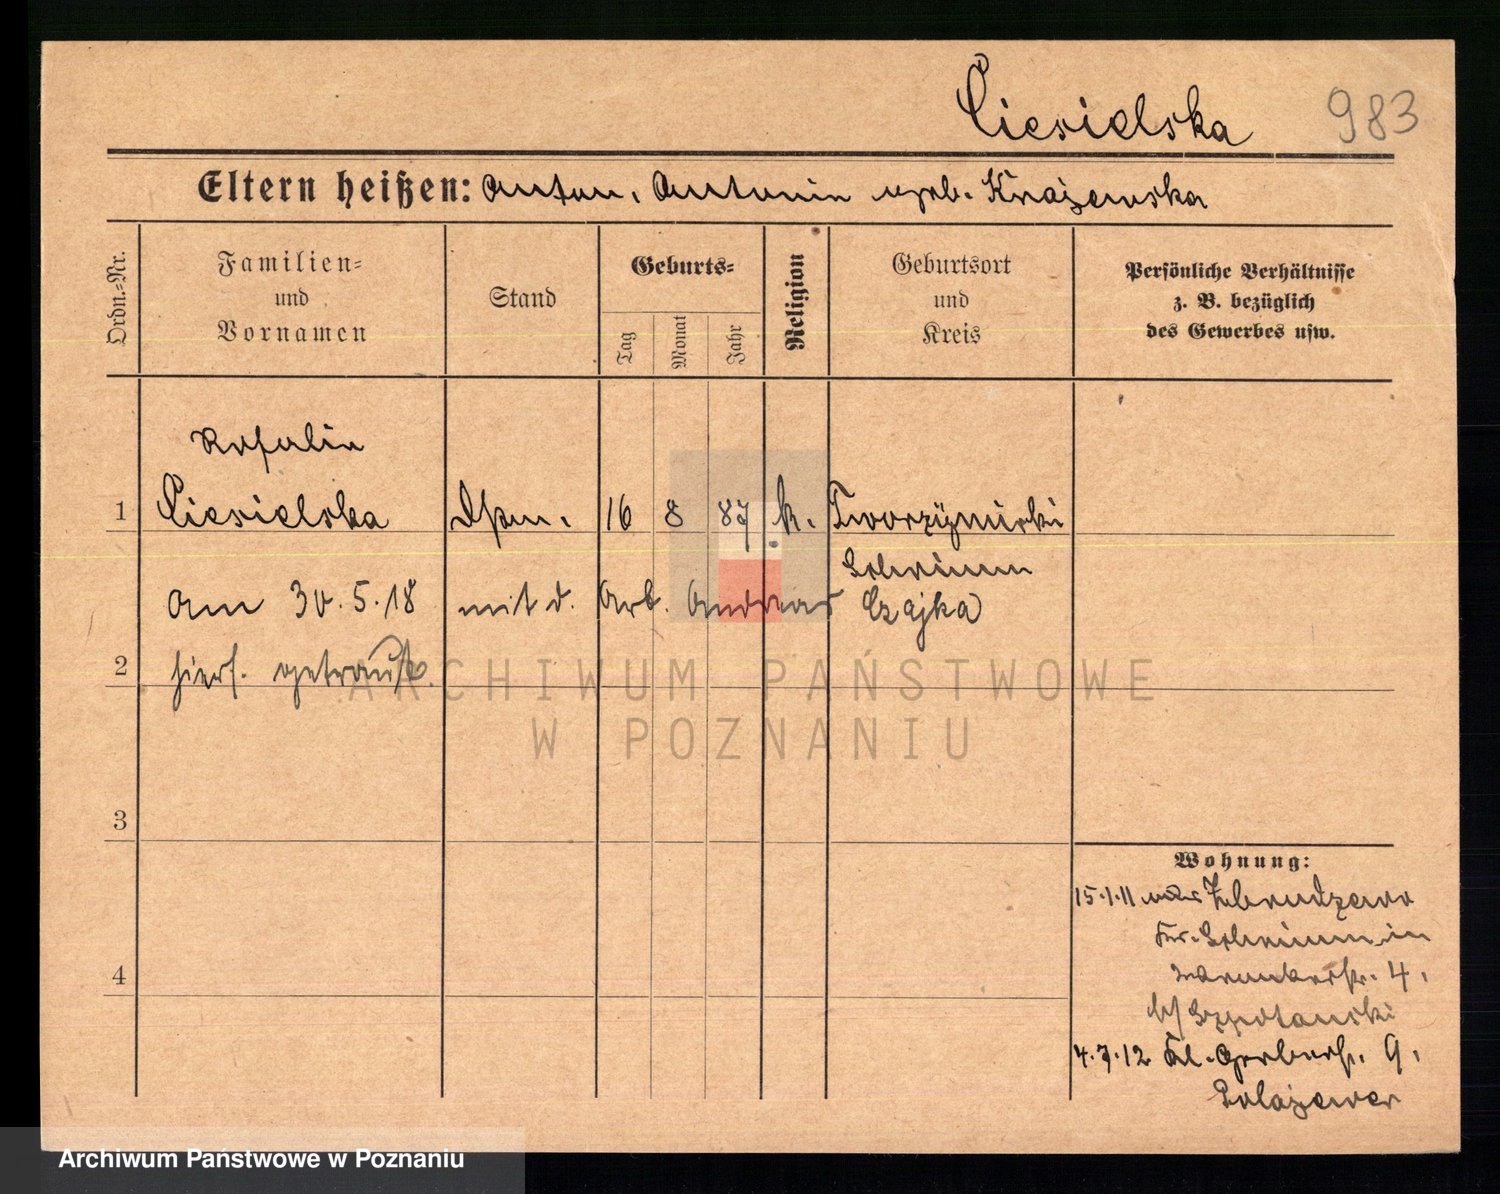 Ciesielska 983
Eltern heißen: Anton, Antonie geb. Knażewska
Ordn.-Nr.
Familien-
und
Vornamen
Stand
Geburts-
Tag
Monat
Jahr
Religion
Geburtsort
und
Kreis
Persönliche Verhältnisse
z. B. bezüglich
des Gewerbes usw.
Rosalie
1 Ciesielska 16 8 87 k. Tworzymirki
Schrimm
am 30.5.18 mit d. Arb. Andreas Czajka
2 hiers. getraut.
3
Wohnung:
15.1.11 Zbrudzewo
Kr. Schrimm in
4
4.
b/ Szpotanski
4.7.12 Kl. Gerberstr. 9,
ARCHIWUM PAŃSTWOWE
W POZNANIU
Archiwum Państwowe w Poznaniu